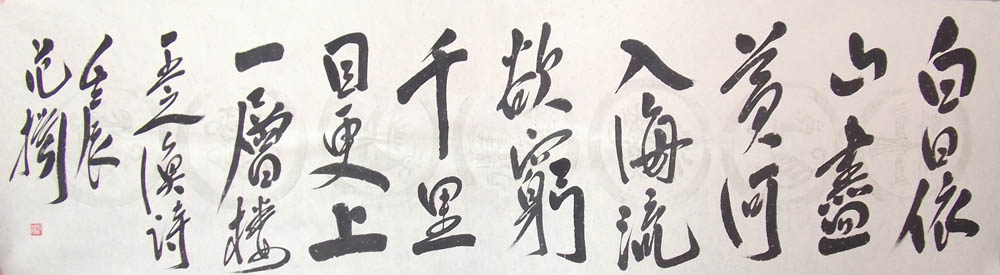 白日依
山盡
黄河
入海流
欲窮
千里
目更上
一層楼
王之渙詩
壬辰
范